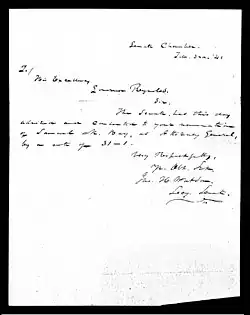 Senate Chamber.
Feb. '41
To/
His Excellency
Governor Reynolds.
Sir.
The Senate, has this day
advised and consented to your nomination
of Samuel M. Bay, as Attorney General,
by a vote of 31 — 1.
Very Respectfully,
Yr. Obt. Svt
Jas. H.
Secy. Senate.